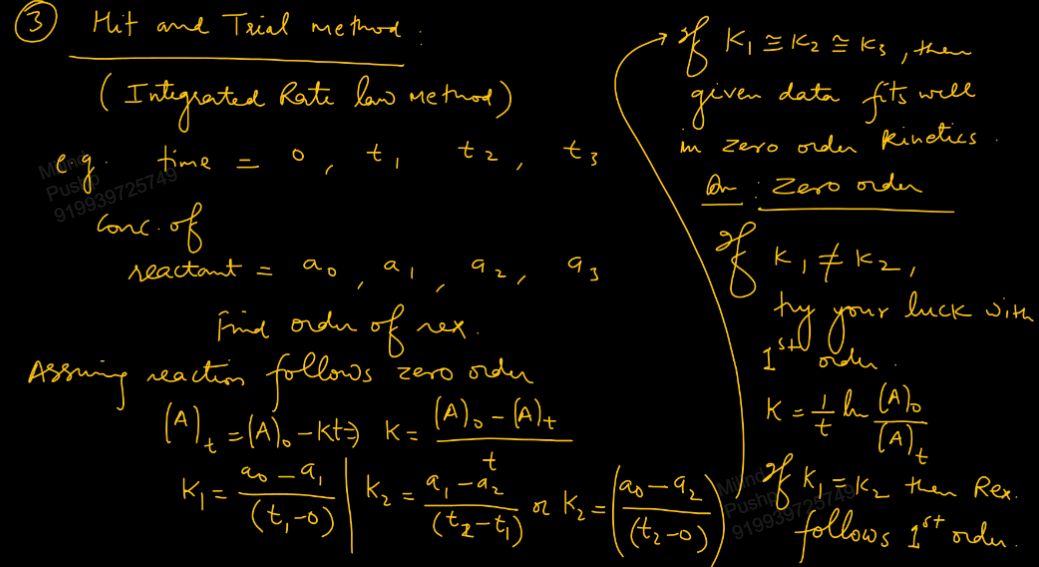 ③ Hit and Trial method :
(Integrated Rate law Method)
e.g. time = 0, t₁ t₂, t₃
Conc. of
reactant = a₀, a₁, a₂, a₃
Find order of rex.
Assuming reaction follows zero order
(A)ₜ = (A)₀ - Kt ⇒ K = (A)₀ - (A)ₜ / t
K₁ = a₀ - a₁ / (t₁ - 0) | K₂ = a₁ - a₂ / (t₂ - t₁) or K₂ = (a₀ - a₂ / (t₂ - 0))
→ If K₁ ≅ K₂ ≅ K₃, then
given data fits well
in zero order kinetics.
Or : Zero order
If K₁ ≠ K₂,
try your luck with
1st order.
K = 1/t ln (A)₀ / (A)ₜ
If K₁ = K₂ then Rex.
follows 1st order.
Milind
Pushp
919939725749
Milind
Pushp
919939725749